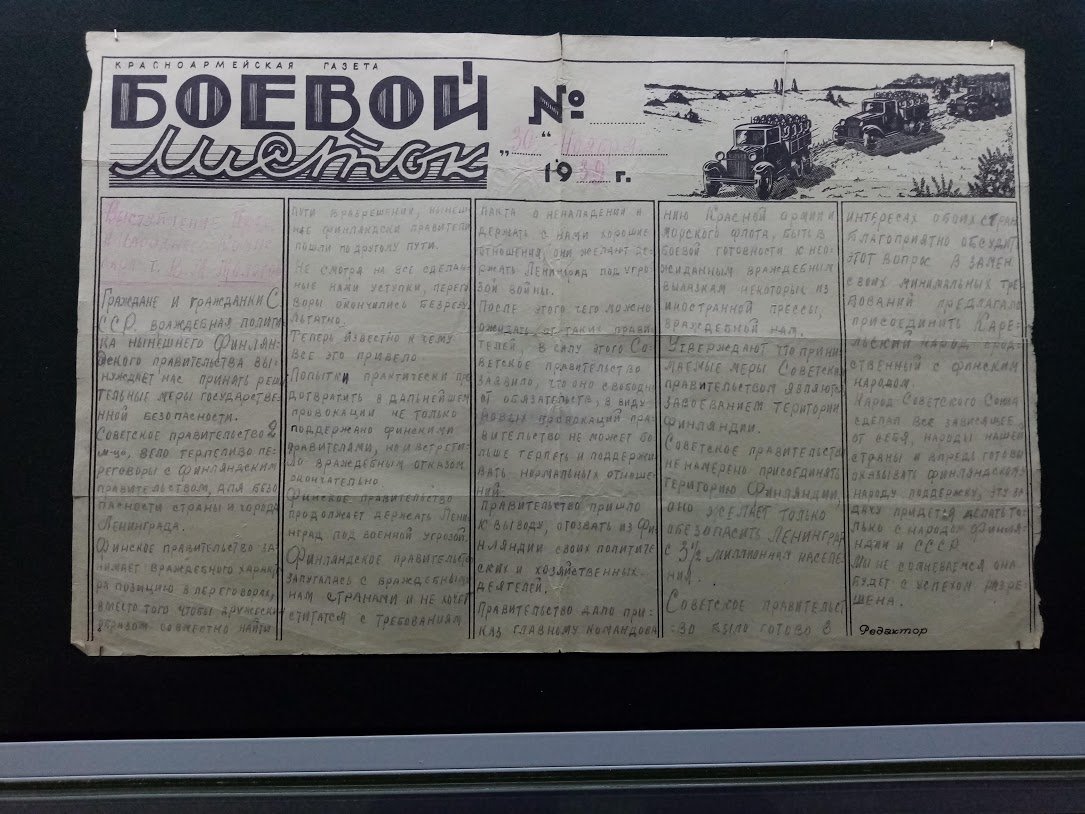 КРАСНОАРМЕЙСКАЯ ГАЗЕТА
БОЕВОЙ
листок
№
„30“ Ноября
1939 г.
Выступление
т.
Граждане и гражданки С
ССР. враждебная полити
ка нынешнего Финлян
дского правительства вы
нуждает нас принять реши
тельные меры государстве
нной безопасности.
Советское правительство 2
м-ца, вело терпеливо пе
реговоры с Финляндским
правительством, для безо
пасности страны и города
Ленинграда.
Финское правительство за
нимает враждебного характ
ра позицию в переговорах,
вместо того чтобы дружеским
образом совместно найти
пути в разрешении, нынеш
ние финляндски правители
пошли по другому пути.
Не смотря на все сделан
ные нами уступки, перего
воры окончились безрезу
льтатно.
Теперь известно к чему
все это привело
Попытки практически пре
дотвратить в дальнейшем
провокации не только
поддержано финскими
правителями, но и встрети
ло враждебным отказом
окончательно.
Финское правительство
продолжает держать Лени
нград под военной угрозой.
Финляндское правительство
запуталась с враждебными
нам странами и не хочет
считатся с требованиям
пакта о ненападении и
держать с нами хорошие
отношения, они желают де
ржать Ленинград под угро
зой войны.
После этого чего можно
ожидать от таких прави
телей, в силу этого Со
ветское правительство
заявило, что оно свободно
от обязательств, в виду
новых провокаций пра
вительство не может бо
льше терпеть и поддержи
вать нормальных отноше
ний.
Правительство пришло
к выводу, отозвать из Фи
нляндии своих политиче
ских и хозяйственных
деятелей.
Правительство дало при-
каз главному командова
нию Красной армии и
морского флота, быть в
боевой готовности к нео
жиданным враждебным
вылазкам некоторых из
иностранной прессы,
враждебной нам.
Утверждают что прини
маемые меры Советским
правительством являются
завоеванием територии
Финляндии.
Советское правительство
не намерено присоединять
територию Финляндии,
оно желает только
обезопасить Ленинград
с 3½ миллионная населе
ния.
Советское правительст
во было готово в
интересах обоих стран
благоприятно обсудит
этот вопрос в замен
своих минимальных тре
бований предлагало
присоединить Каре-
льский народ срод
ственный с финским
народом.
Народ Советского Союза
сделал все зависящее
от себя, народы нашей
страны и впредь готовы
оказывать финляндскому
народу поддержку, эту за
дачу придется делать то
лько с народом Финля
ндии и СССР.
Мы не сомневаемся она
будет с успехом разре
шена.
Редактор